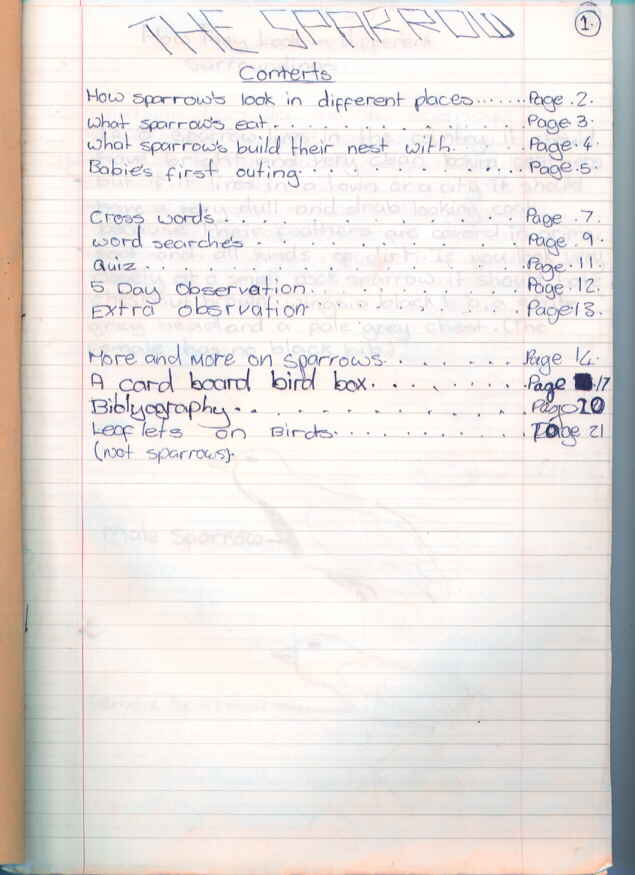 THE SPARROW
1.
Contents
How sparrow's look in different places.......Page.2.
what sparrow's eat............Page 3.
what sparrow's build their nest with......Page.4.
Babie's first outing..............Page.5.
Cross words............Page.7.
word searche's............Page.9.
Quiz............Page.11.
5 Day Observation..........Page.12.
Extra obsrvation..........Page13.
More and More on sparrows........Page 14.
A card board bird box........Page 17
Biblyography............Page20
Leaflets on Birds...........Page 21
(not sparrows).
male sparrow